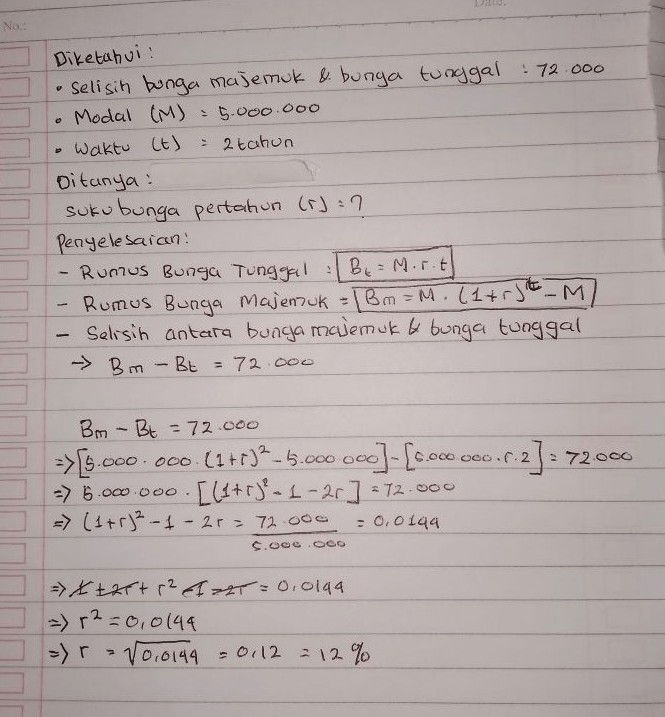 No.:
Date.
Diketahui :
• Selisih bunga majemuk & bunga tunggal : 72.000
• Modal (M) = 5.000.000
• Waktu (t) = 2 tahun
Ditanya :
suku bunga pertahun (r) = ?
Penyelesaian:
- Rumus Bunga Tunggal : Bt = M.r.t
- Rumus Bunga Majemuk = Bm = M . (1+r)^t - M
- Selisih antara bunga majemuk & bunga tunggal
→ Bm - Bt = 72.000
Bm - Bt = 72.000
=> [5.000.000.(1+r)² - 5.000.000] - [5.000.000.r.2] = 72.000
=> 5.000.000 . [(1+r)² - 1 - 2r] = 72.000
=> (1+r)² - 1 - 2r = 72.000 / 5.000.000 = 0,0144
=> 1 + 2r + r² - 1 - 2r = 0,0144
=> r² = 0,0144
=> r = √0,0144 = 0,12 = 12 %